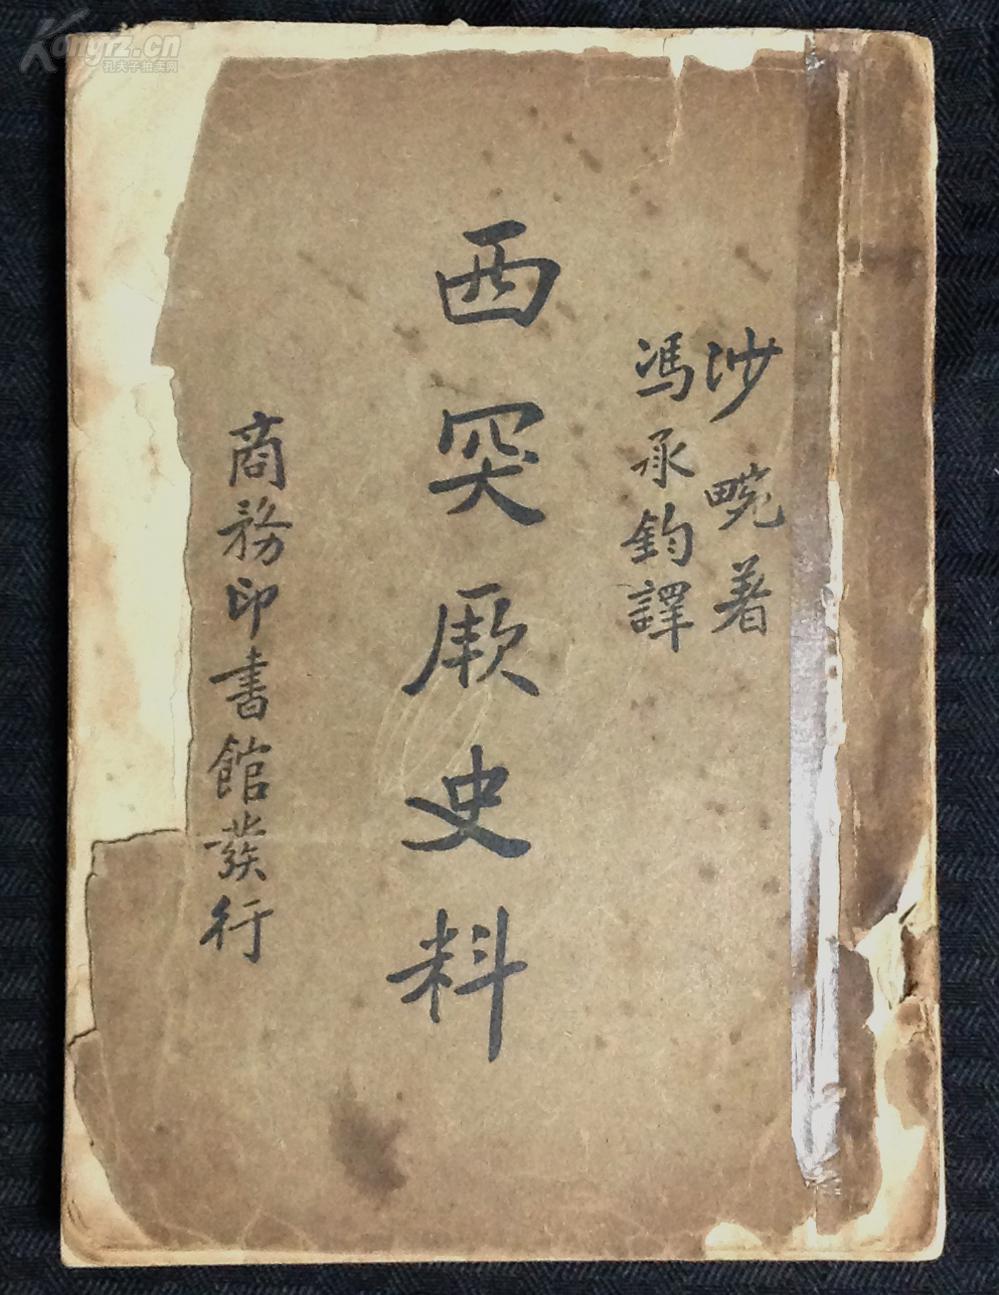 沙畹著
馮承鈞譯
西突厥史料
商務印書館發行
Kongfz.cn
孔夫子拍卖网